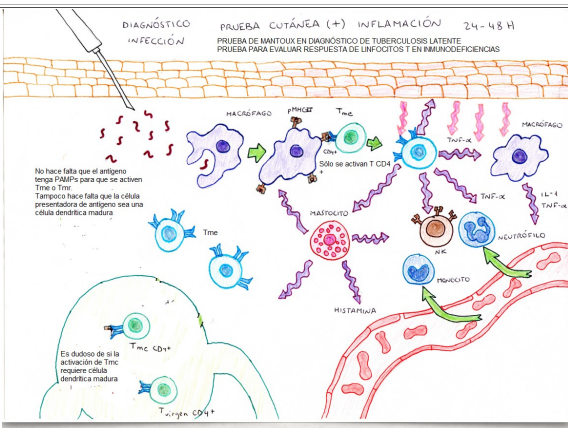 DIAGNÓSTICO
INFECCIÓN
PRUEBA CUTÁNEA (+) INFLAMACIÓN 24-48 H
PRUEBA DE MANTOUX EN DIAGNÓSTICO DE TUBERCULOSIS LATENTE
PRUEBA PARA EVALUAR RESPUESTA DE LINFOCITOS T EN INMUNODEFICIENCIAS
MACRÓFAGO
pMHCII
Tme
CD4+
Sólo se activan T CD4
+
TNF-α
MACRÓFAGO
No hace falta que el antígeno
tenga PAMPs para que se activen
Tme o Tmr.
Tampoco hace falta que la célula
presentadora de antígeno sea una
célula dendrítica madura
Tme
MASTOCITO
TNF-α
IL-1
TNF-α
NK
NEUTRÓFILO
MONOCITO
HISTAMINA
Tmc CD4+
Es dudoso de si la
activación de Tmc
requiere célula
dendrítica madura
Tvirgen CD4+